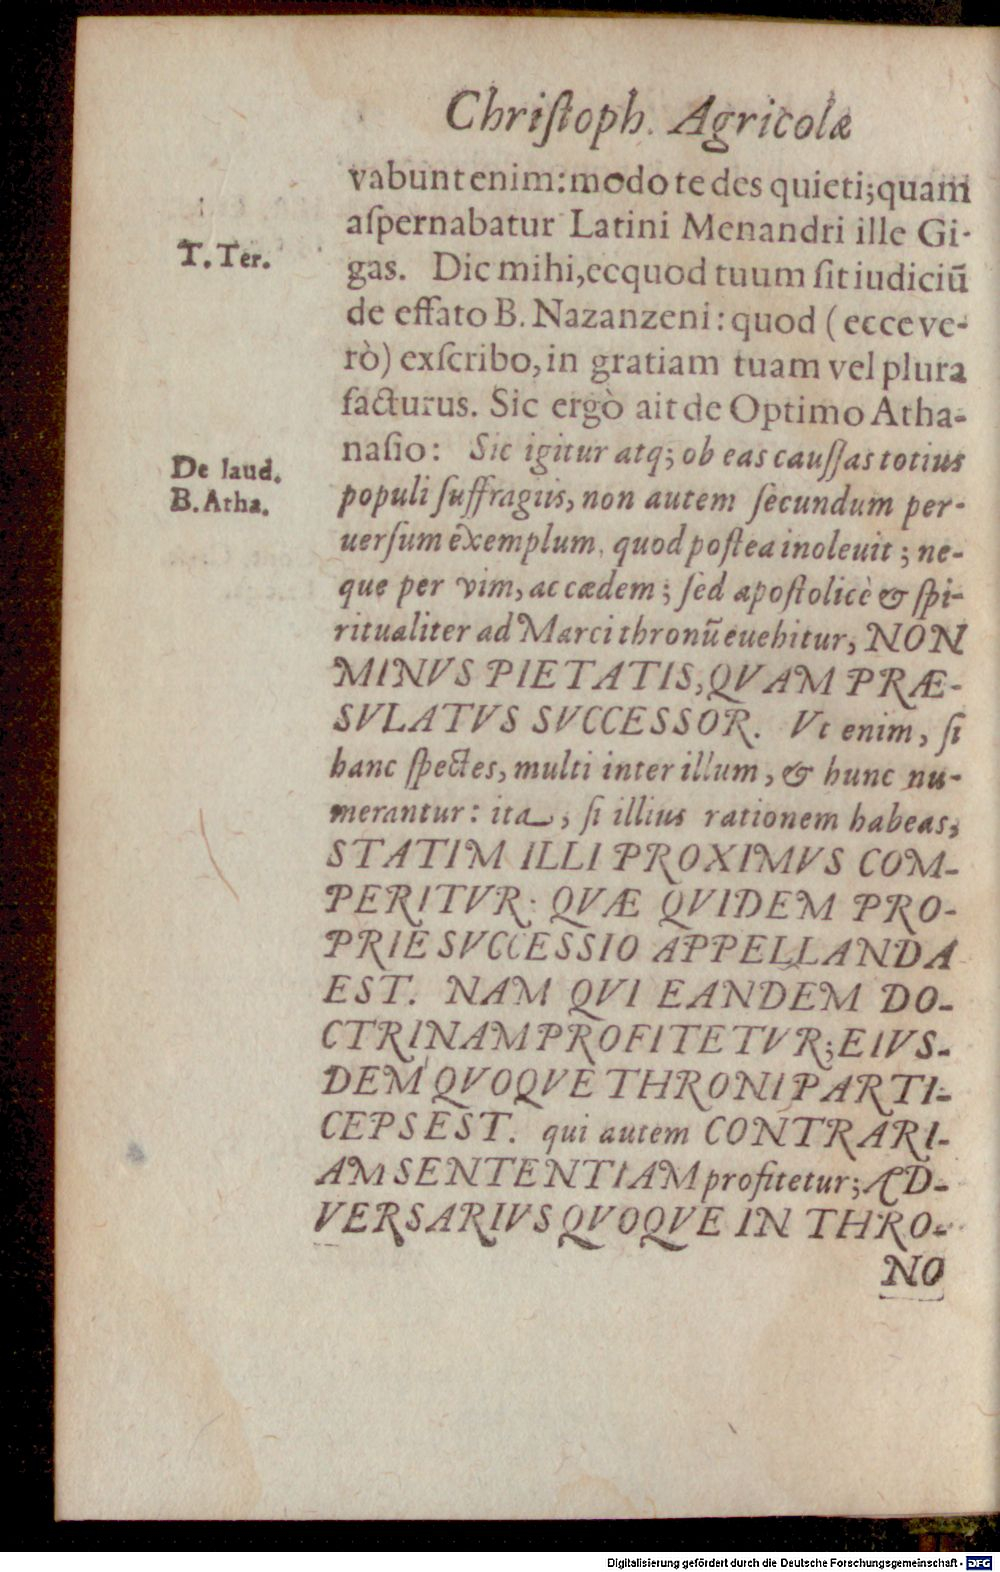 Chriſtoph. Agricolæ
vabunt enim: modo te des quieti; quam
aſpernabatur Latini Menandri ille Gi-
T. Ter.
gas. Dic mihi, ecquod tuum ſit iudiciũ
de effato B. Nazanzeni: quod (ecce ve-
rò) exſcribo, in gratiam tuam vel plura
facturus. Sic ergò ait de Optimo Atha-
naſio: Sic igitur atq; ob eas cauſſas totius
De laud.
B. Atha.
populi ſuffragiis, non autem ſecundum per-
uerſum exemplum, quod poſtea inoleuit; ne-
que per vim, ac cædem; ſed apoſtolicè & ſpi-
ritualiter ad Marci thronũ euehitur, NON
MINVS PIETATIS, QVAM PRÆ-
SVLATVS SVCCESSOR. Vt enim, ſi
hanc ſpectes, multi inter illum, & hunc nu-
merantur: ita, ſi illius rationem habeas,
STATIM ILLI PROXIMVS COM-
PERITVR: QVÆ QVIDEM PRO-
PRIE SVCCESSIO APPELLANDA
EST. NAM QVI EANDEM DO-
CTRINAM PROFITETVR; EIVS-
DEM QVOQVE THRONI PARTI-
CEPS EST. qui autem CONTRARI-
AM SENTENTIAM profitetur; AD-
VERSARIVS QVOQVE IN THRO-
NO
Digitalisierung gefördert durch die Deutsche Forschungsgemeinschaft - DFG